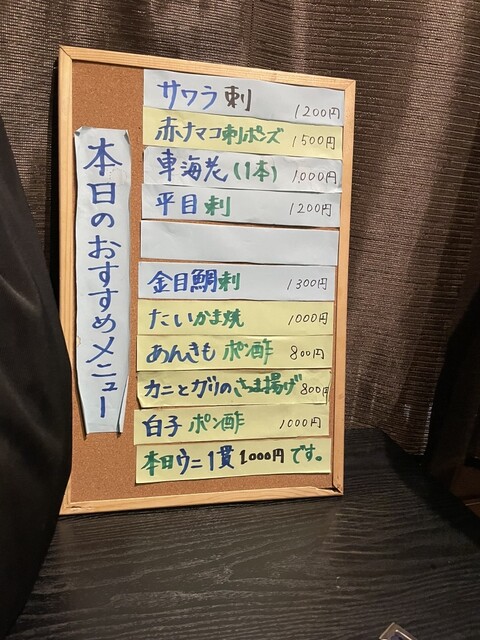 本日のおすすめメニュー
サワラ刺 1200円
赤ナマコ刺ポンズ 1500円
車海老(1本) 1,000円
平目刺 1200円
金目鯛刺 1300円
たいかま焼 1000円
あんきもポン酢 800円
カニとガリのさつま揚げ 800円
白子ポン酢 1000円
本日ウニ1貫1.000円です。